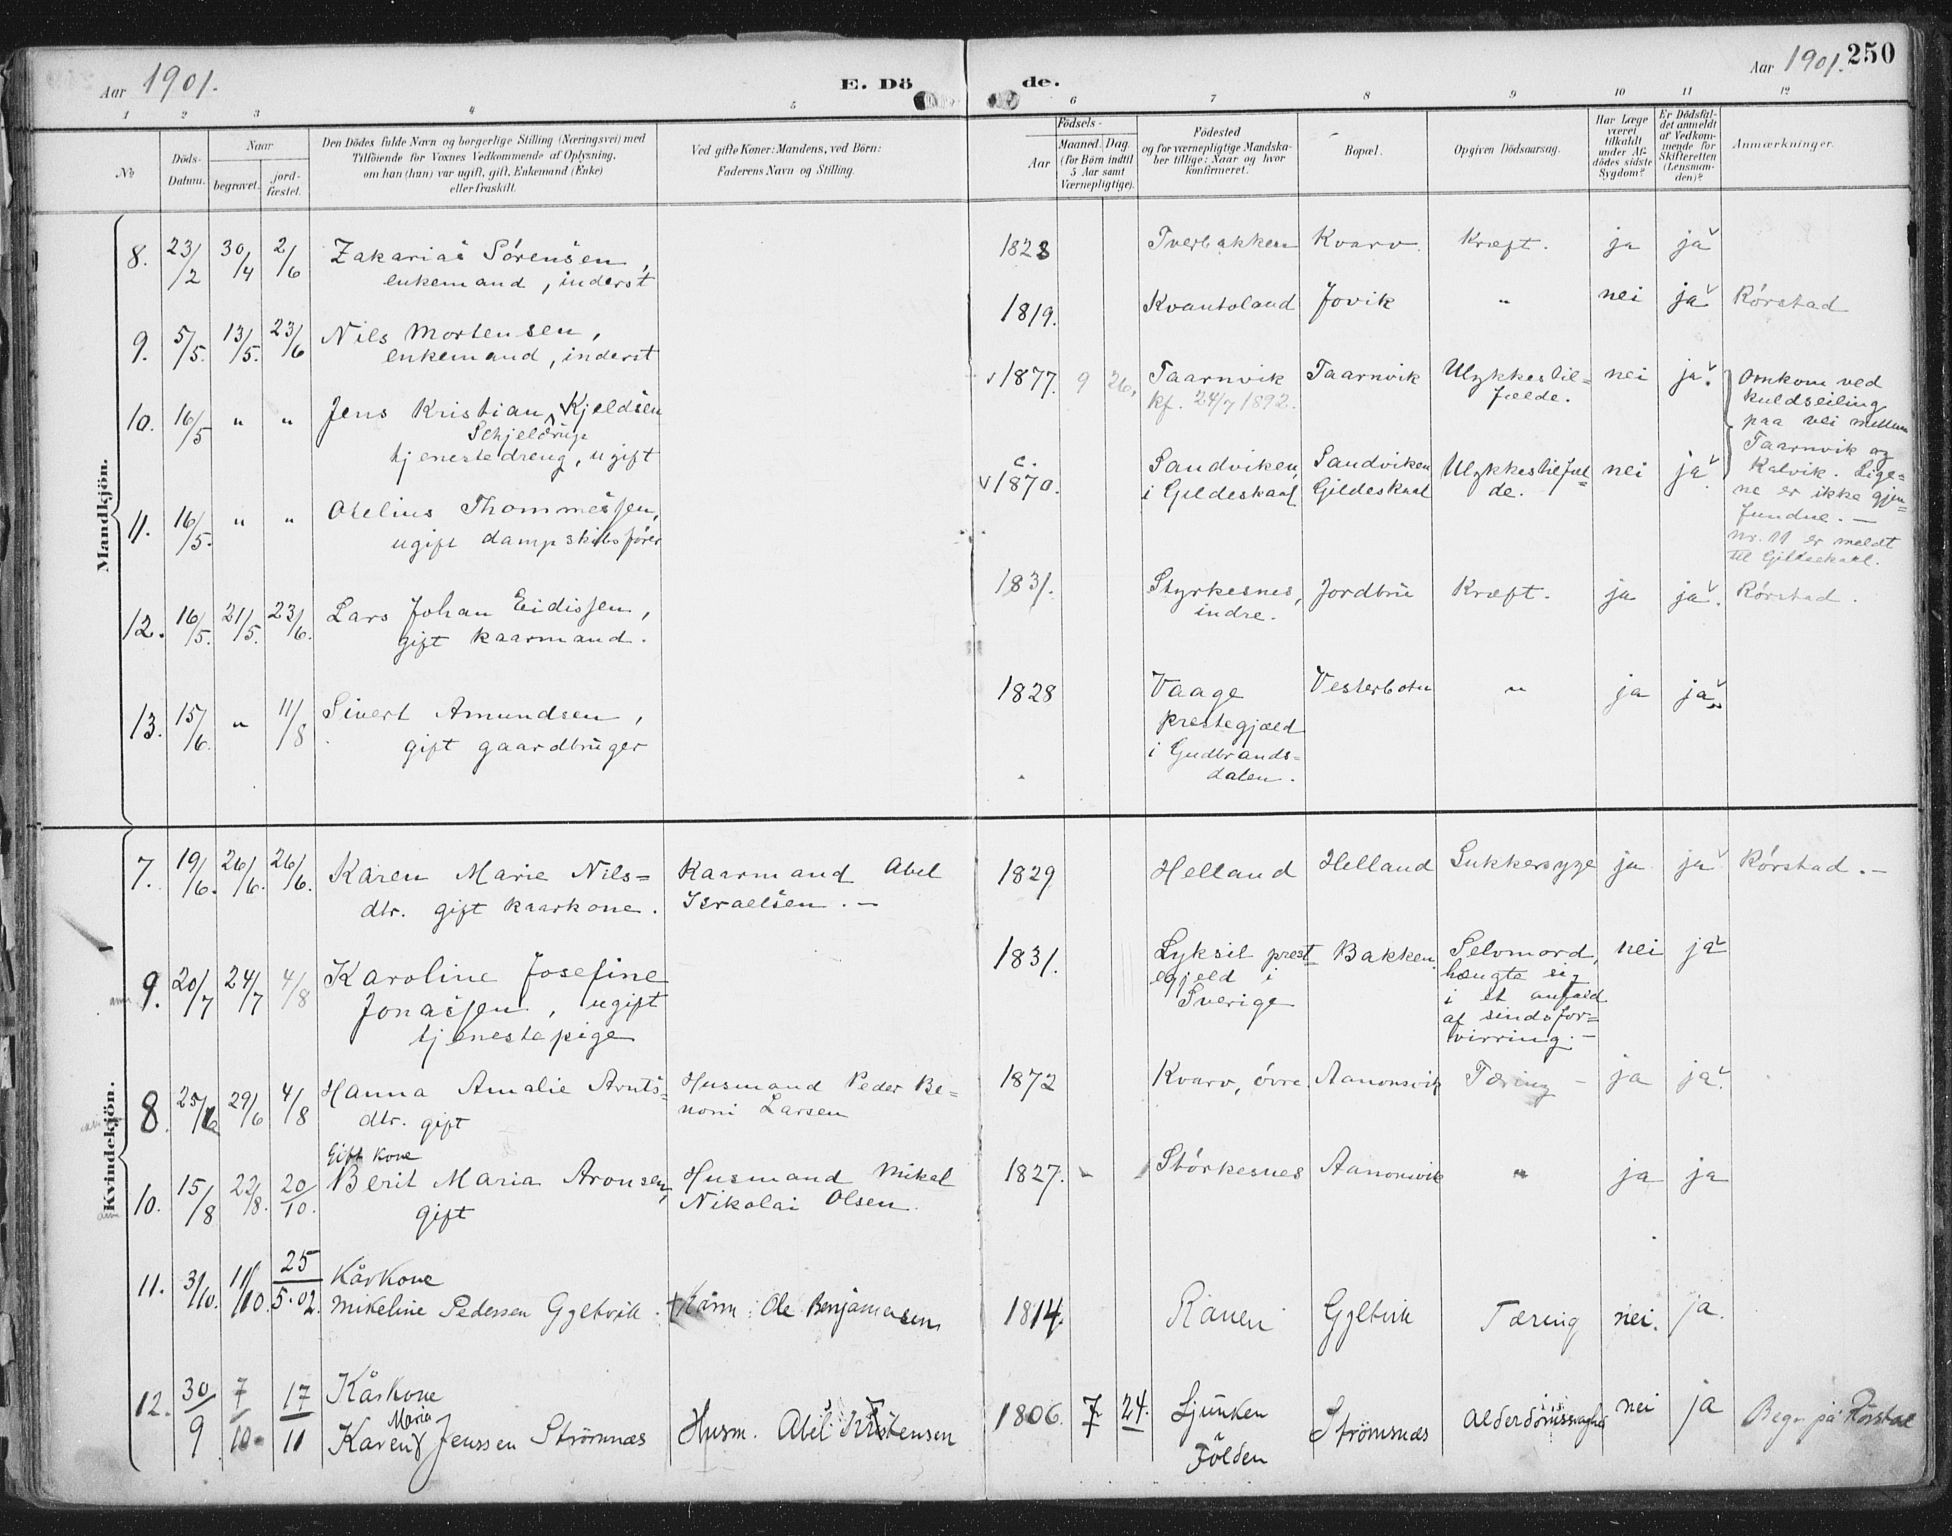 Aar 1901.
E. Dö
de.
Aar 1901. 250
1 2 3 4 5 6 7 8 9 10 11 12
No
Döds-
Datum.
Naar
begravet.
jord-
fæstet.
Den Dödes fulde Navn og borgerlige Stilling (Næringsvei) med
Tilföiende for Voxnes Vedkommende af Oplysning,
om han (hun) var ugift, gift, Enkemand (Enke)
eller fraskilt.
Ved gifte Koner: Mandens, ved Börn:
Faderens Navn og Stilling.
Födsels-
Aar
Maaned. Dag.
(for Börn indtil
5 Aar samt
Værnepligtige).
Födested
og for værnepligtige Mandska-
ber tillige: Naar og hvor
konfirmeret.
Bopæl.
Opgiven Dödsaarsag.
Har Læge
været
tilkaldt
under Af-
dödes sidste
Sygdom?
Er Dödsfal-
det anmeldt
af Vedkom-
mende for
Skifteretten
(Lensman-
den)?
Anmærkninger.
Mandkjön.
8. 23/2 30/4 2/6 Zakarias Sörensen,
enkemand, inderst
1823 Tverbakken Kvarv Kræft. ja ja
9. 5/5. 13/5. 23/6 Nils Mortensen,
enkemand, inderst
1819. Kvantoland Jovik " nei ja Rörstad
10. 16/5 " " Jens Kristian Kjeldsen
Schjeldrup
tjenestedreng, ugift
1877. 9 26. Taarnvik Taarnvik Ulykkestil=
fælde. nei ja.
kf. 24/7 1892.
Omkom ved
kuldseiling
paa vei mellem
Taarnvik og
Kalvik. Lige=
ne er ikke gjen=
fundne. —
nr. 11 er meldt
til Gildeskaal.
11. 16/5. " " Otelius Thommessen,
ugift dampskibsförer
c.
1870. Sandviken, Sandviken Ulykkestilfæl=
i Gildeskaal Gildeskaal de. nei ja
12. 16/5. 21/5. 23/6. Lars Johan Eidissen,
gift kaarmand.
1831. Styrkesnes, Jordbru Kræft. ja ja. Rörstad.
indre.
13. 15/6. " 11/8 Sivert Amundsen,
gift gaardbruger
1828 Vaage Vesterbotn " ja ja
prestegjæld
i Gudbrands=
dalen.
Kvindekjön.
7. 19/6. 26/6. 26/6. Karen Marie Nils=
dtr. gift kaarkone.
Kaarmand Abel
Israelsen. —
1829 Helland Helland Sukkersyge ja ja Rörstad. —
9. 20/7 24/7 4/8 Karoline Josefine
Jonassen, ugift
tjenestepige
1831. Lyksil prest Bakken. Selvmord, nei ja
egjeld i
Sverige
hængte sig
i et anfald
af sindsfor=
virring. —
8. 25/6 29/6 4/8 Hanna Amalie Arnts=
dtr. gift
Husmand Peder Be=
noni Larsen
1872 Kvarv, övre Aanonsvik Tæring - ja ja.
Gift kone
10. 15/8 22/8. 20/10. Berit Maria Aronsen,
gift
Husmand Mikal
Nikolai Olsen.
1827. Störkesnes Aanonsvik " ja ja
11. 3/10. 11/10. 25/5.02. Kårkone
Mikeline Pedersen Gyltvik.
Kårm. Ole Benjaminsen
1814. Ranen Gyltvik Tæring nei. ja.
12. 30/9 7/10 17/11 Kårkone
Maria
Karen Jenssen Strömnæs
Husm. Abel Kristensen
1806. 7. 24. Ljunken Strömsnæs Alderdomssvaghed nei ja Begr. på Rörstad
Földen